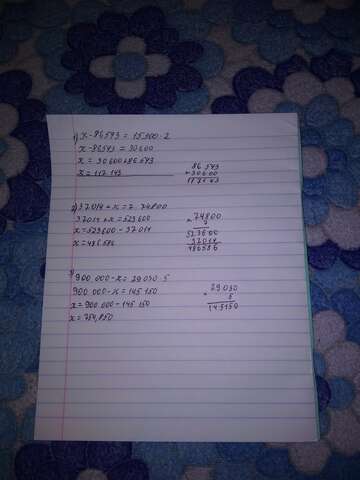 1) x - 86543 = 15300 · 2
x - 86543 = 30600
x = 30600 + 86543
x = 117143
86 543
+ 30600
117143
2) 37014 + x = 7 · 74800
37014 + x = 523600
x = 523600 - 37014
x = 486586
× 74800
7
523600
37014
486586
3)
900 000 - x = 29 030 · 5
900 000 - x = 145 150
x = 900 000 - 145 150
x = 754,850
× 29 030
5
145150